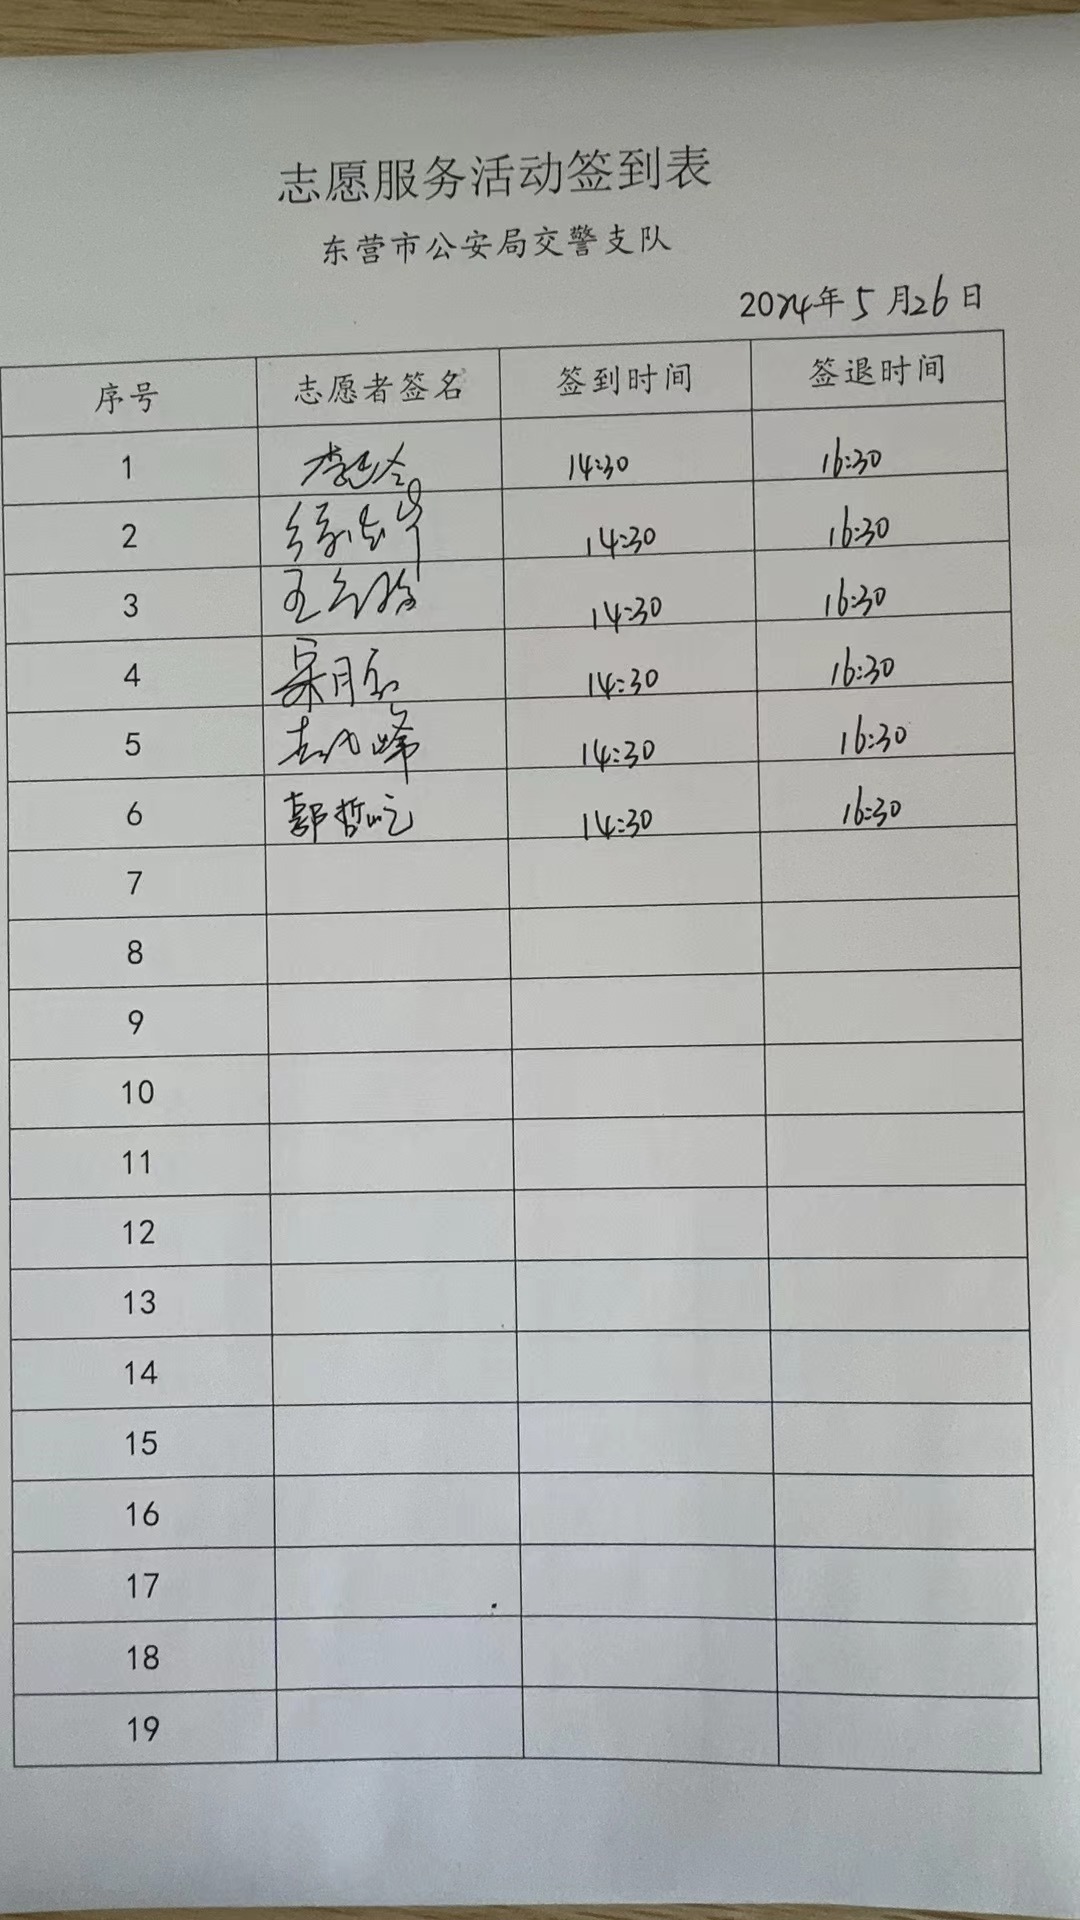 志愿服务活动签到表
东营市公安局交警支队
2024年5月26日
序号 志愿者签名 签到时间 签退时间
1 14:30 16:30
2 14:30 16:30
3 王 14:30 16:30
4 14:30 16:30
5 峰 14:30 16:30
6 郭哲屹 14:30 16:30
7
8
9
10
11
12
13
14
15
16
17
18
19